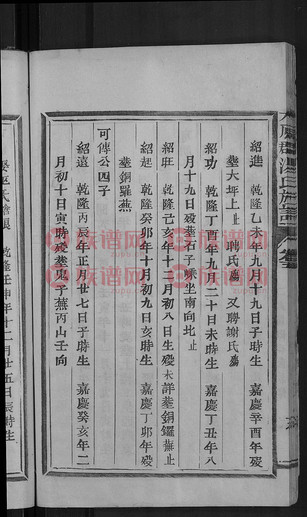 紹進 乾隆乙未年九月十九日子時生 嘉慶辛酉年歿
塟大坪上 止 聘氏 又聘謝氏
紹功 乾隆丁酉年九月二十日未時生 嘉慶丁丑年八
月十九日歿塟石子 坐南向北 止
紹旺 乾隆己亥年十二月初八日生歿未詳塟銅鑼蕪 止
紹起 乾隆癸卯年十月初九日亥時生 嘉慶丁卯年歿
塟銅羅蕪
可傳公四子
紹遠 乾隆丙辰年正月廿七日子時生 嘉慶癸亥年二
月初十日寅時歿塟鬼子蕪丙山壬向
乾隆壬申年十二月廿五日辰時生
族谱网